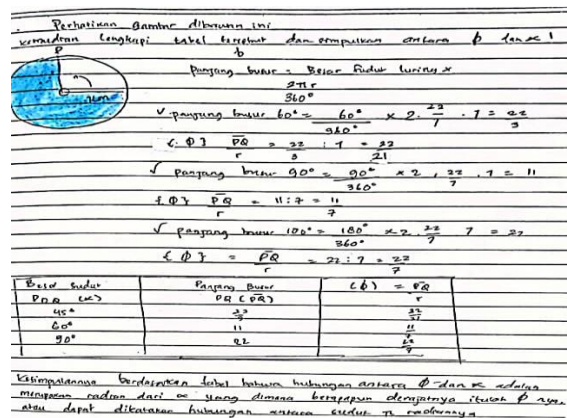 Perhatikan gambar dibawah ini
kemudian lengkapi tabel tersebut dan simpulkan antara ϕ dan ∝ !
P
7cm
Panjang busur = Besar sudut luring x
2πr
360°
√ panjang busur 60° = 60° / 360° x 2 . 22/7 . 7 = 22/3
{ Φ } PQ / r = 22/3 : 7 = 22/21
√ panjang busur 90° = 90° / 360° x 2 . 22/7 . 7 = 11
{ Φ } PQ / r = 11 : 7 = 11/7
√ panjang busur 180° = 180° / 360° x 2 . 22/7 7 = 22
{ Φ } = PQ / r = 22 : 7 = 22/7
Besar sudut Panjang Busur (ϕ) = PQ / r
PDQ (∝) PQ (PQ)
45° 22/3 22/21
60° 11 11/7
90° 22 22/7
Kesimpulannya berdasarkan tabel bahwa hubungan antara ϕ dan ∝ adalah
merupakan radian dari ∝ yang dimana berapapun derajatnya itulah ϕ nya.
atau dapat dikatakan hubungan antara sudut π radiannya